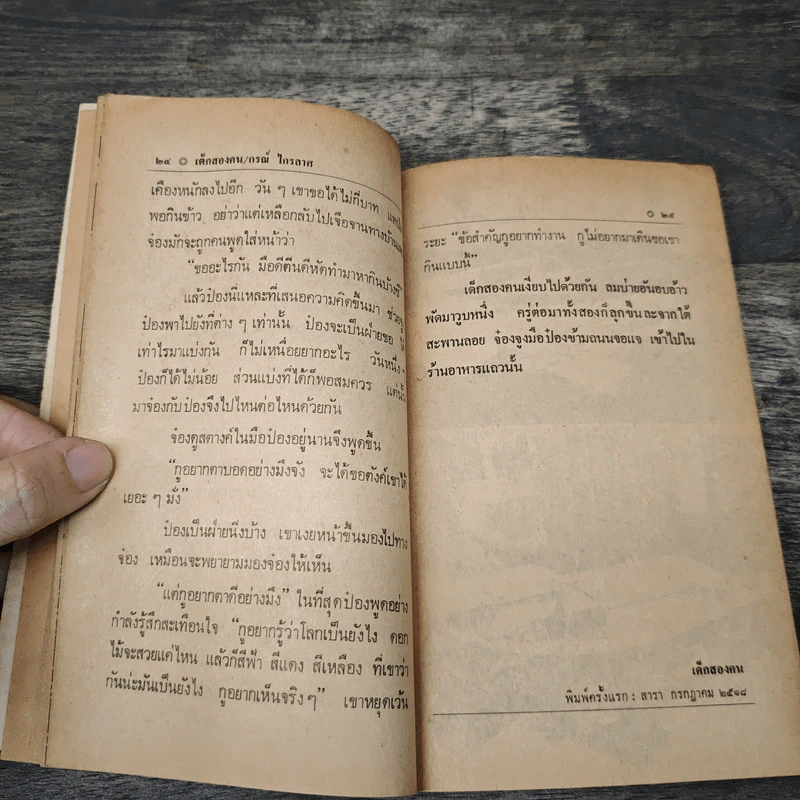 ๒๔ ๏ เด็กสองคน/กรณ์ ไกรลาศ
เคืองหนักลงไปอีก วัน ๆ เขาขอได้ไม่กี่บาท
พอกินข้าว อย่าว่าแต่เหลือกลับไปเจือจานทางบ้านเลย
จ๋องมักจะถูกคนพูดใส่หน้าว่า
“ขออะไรกัน มือดีตีนดีหัดทำมาหากินบ้างซิ
แล้วป๋องนี่แหละที่เสนอความคิดขึ้นมา
ป๋องพาไปยังที่ต่าง ๆ เท่านั้น ป๋องจะเป็นฝ่ายขอ
เท่าไรมาแบ่งกัน ก็ไม่เหนื่อยยากอะไร วันหนึ่ง ๆ
ป๋องก็ได้ไม่น้อย ส่วนแบ่งที่ได้ก็พอสมควร แต่นั้น
มาจ๋องกับป๋องจึงไปไหนต่อไหนด้วยกัน
จ๋องดูสตางค์ในมือป๋องอยู่นานจึงพูดขึ้น
“กูอยากตาบอดอย่างมึงจัง จะได้ขอตังค์เขาได้
เยอะ ๆ มั่ง”
ป๋องเป็นฝ่ายนิ่งบ้าง เขาเงยหน้าขึ้นมองไปทาง
จ๋อง เหมือนจะพยายามมองจ๋องให้เห็น
“แต่กูอยากตาดีอย่างมึง” ในที่สุดป๋องพูดอย่าง
กำลังรู้สึกสะเทือนใจ “กูอยากรู้ว่าโลกเป็นยังไง ดอก
ไม้จะสวยแค่ไหน แล้วก็สีฟ้า สีแดง สีเหลือง ที่เขาว่า
กันน่ะมันเป็นยังไง กูอยากเห็นจริง ๆ” เขาหยุดเว้น
๏ ๒๕
ระยะ “ข้อสำคัญกูอยากทำงาน กูไม่อยากมาเดินขอเขา
กินแบบนี้”
เด็กสองคนเงียบไปด้วยกัน ลมบ่ายอันอบอ้าว
พัดมาวูบหนึ่ง ครู่ต่อมาทั้งสองก็ลุกขึ้นละจากใต้
สะพานลอย จ๋องจูงมือป๋องข้ามถนนจอแจ เข้าไปใน
ร้านอาหารแถวนั้น
เด็กสองคน
พิมพ์ครั้งแรก : ลารา กรกฎาคม ๒๕๑๘